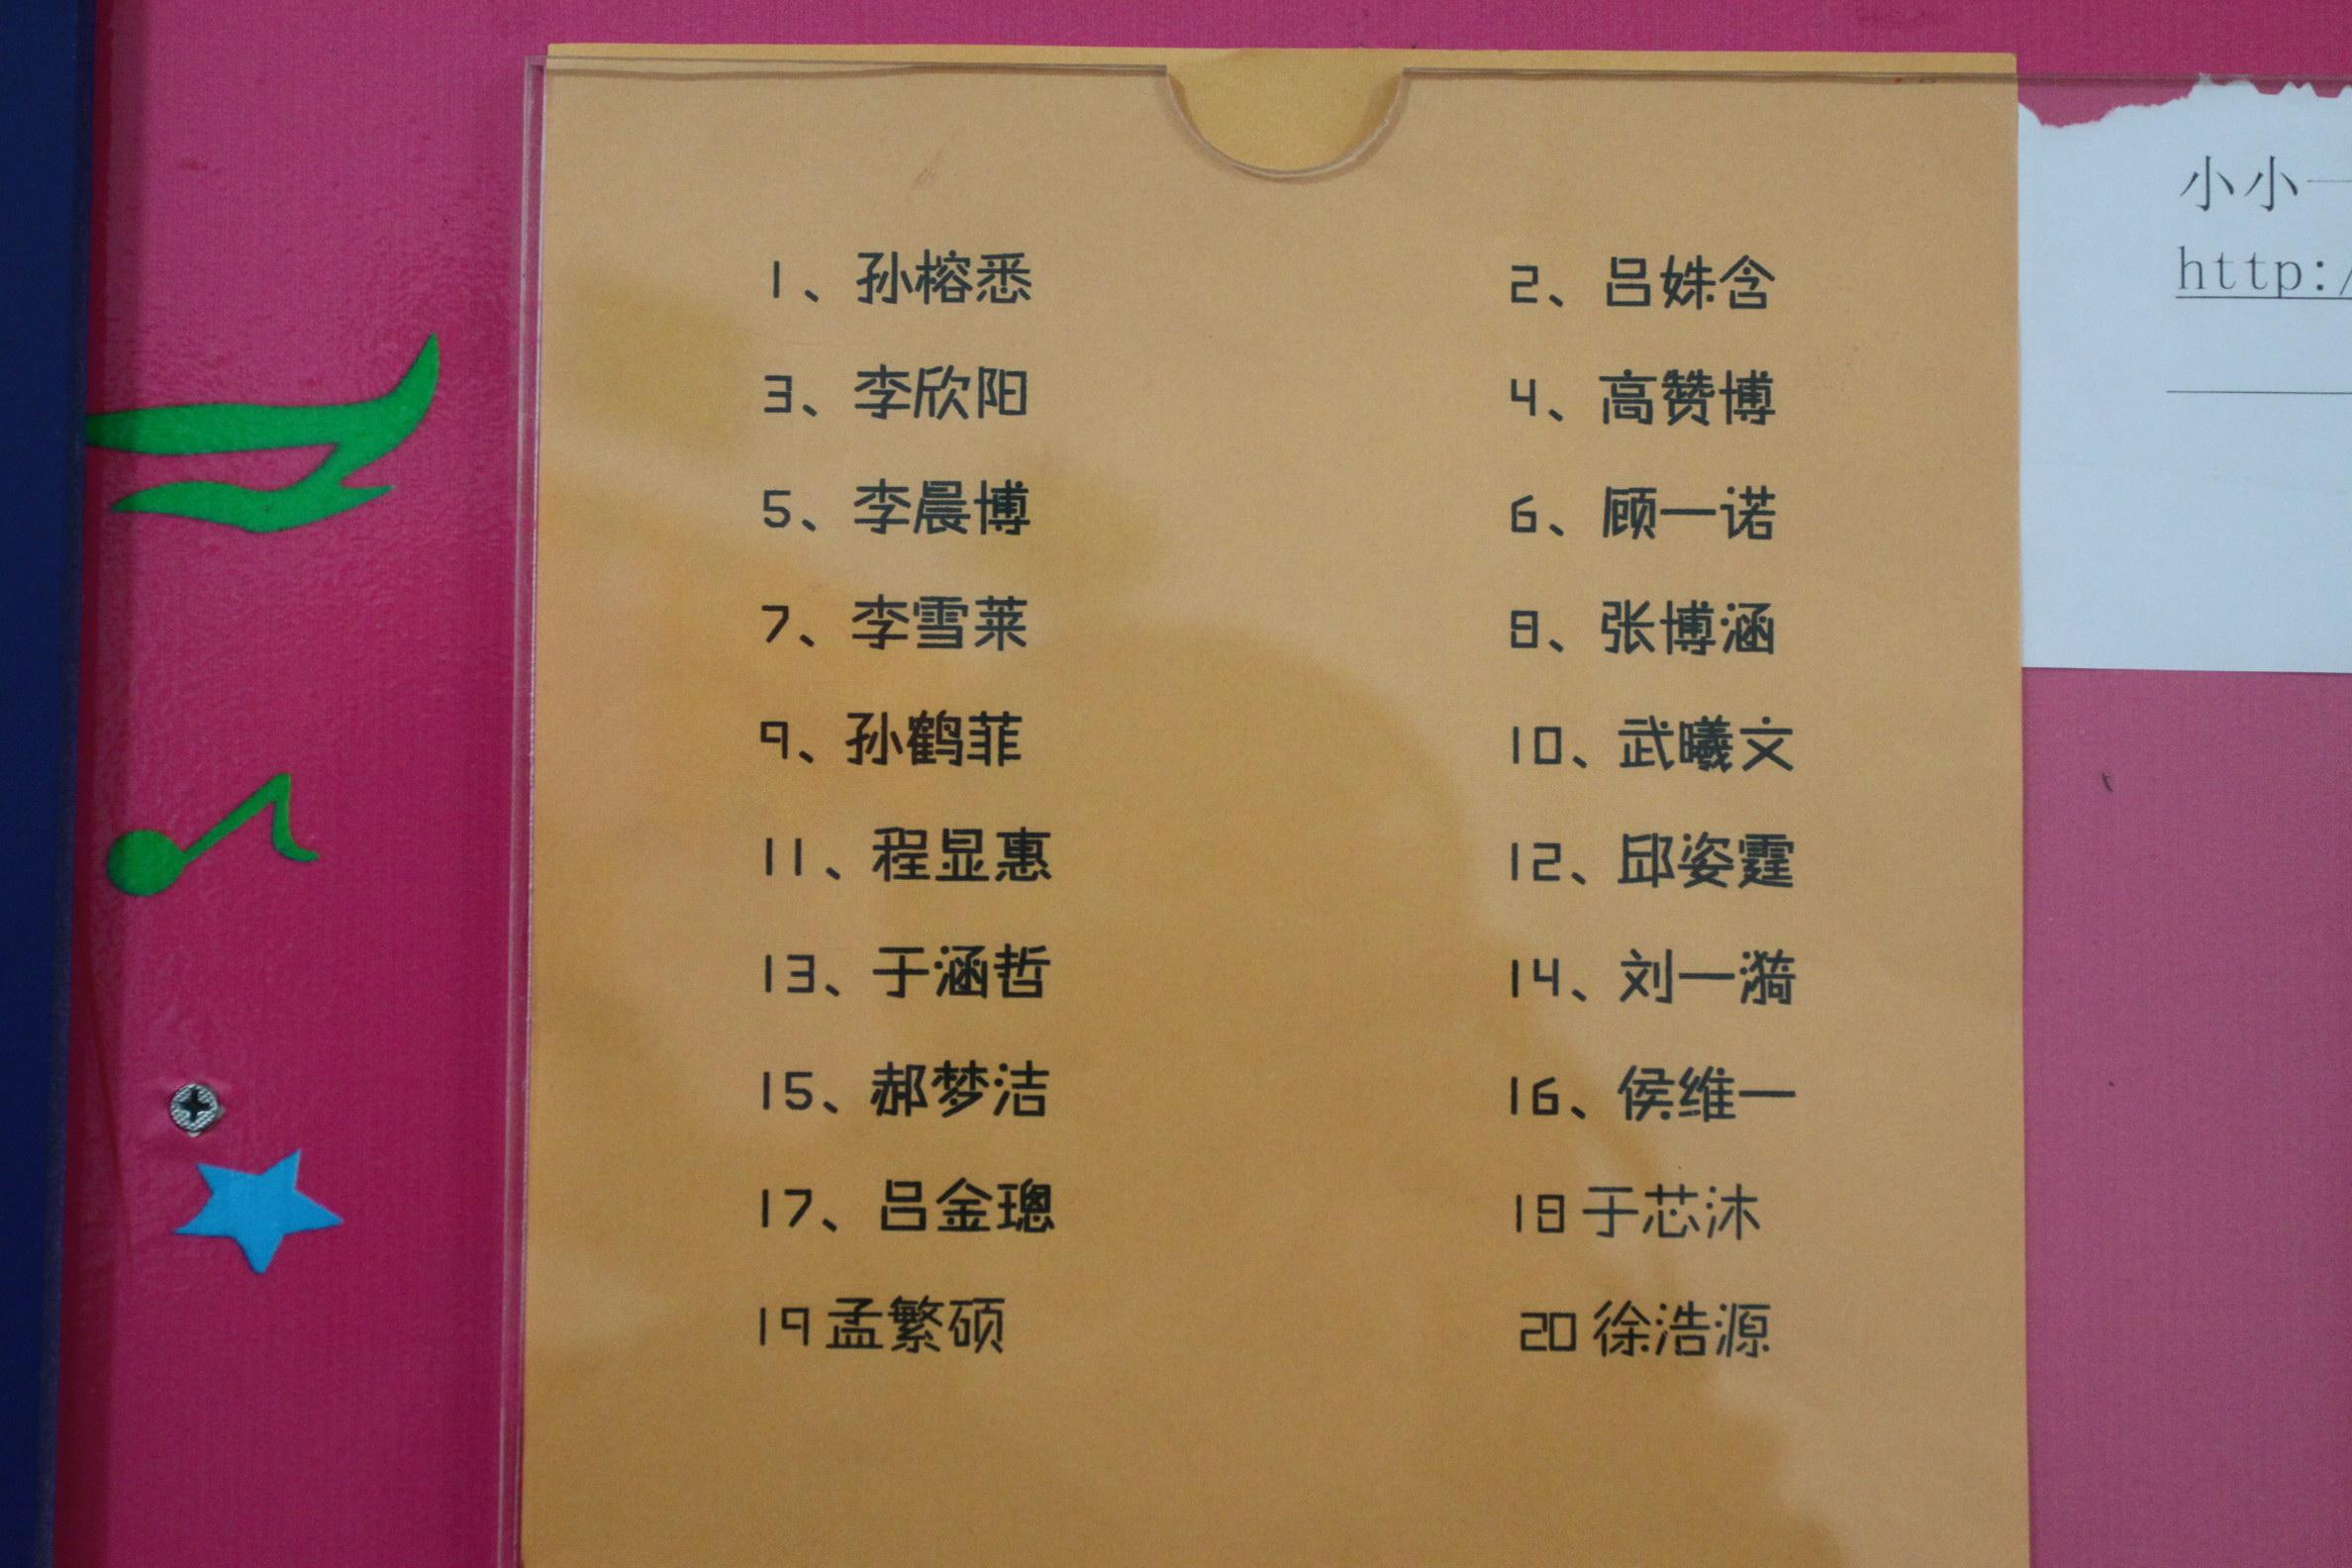 1、孙榕悉 2、吕姝含
3、李欣阳 4、高赞博
5、李晨博 6、顾一诺
7、李雪莱 8、张博涵
9、孙鹤菲 10、武曦文
11、程显惠 12、邱姿霆
13、于涵哲 14、刘一漪
15、郝梦洁 16、侯维一
17、吕金璁 18于芯沐
19孟繁硕 20徐浩源
小小一
http:/